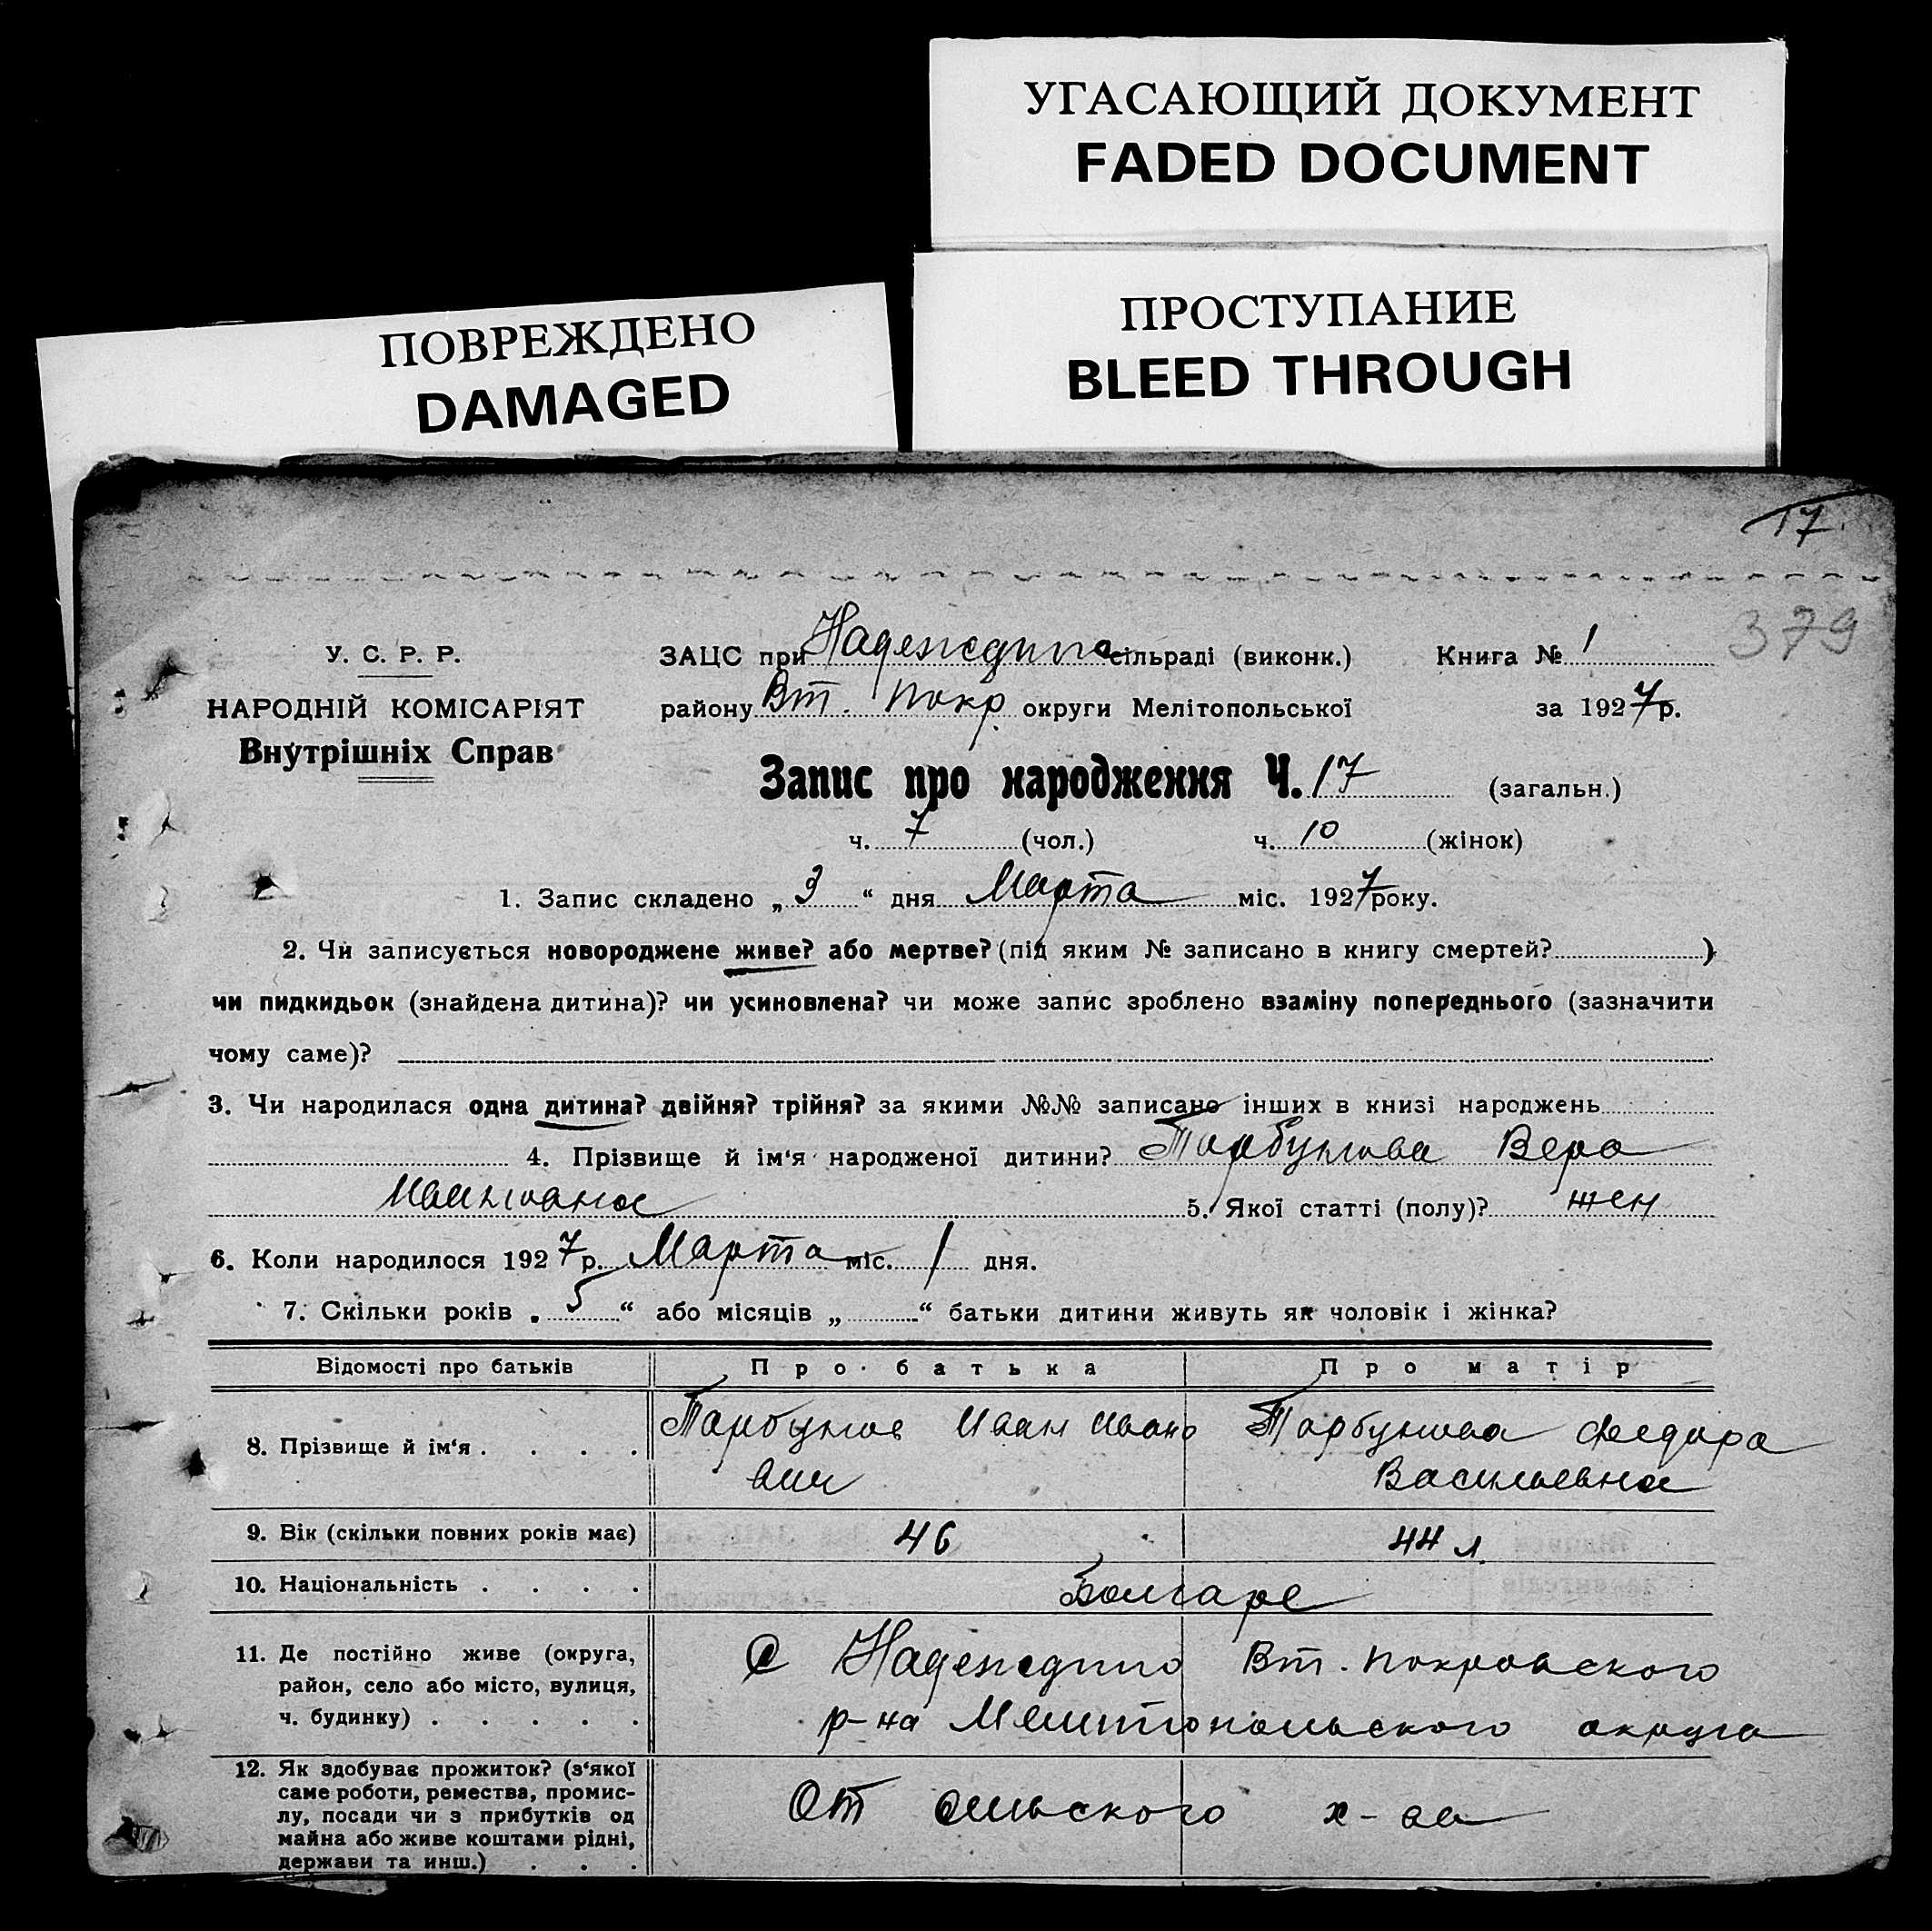 УГАСАЮЩИЙ ДОКУМЕНТ
FADED DOCUMENT
ПРОСТУПАНИЕ
BLEED THROUGH
ПОВРЕЖДЕНО
DAMAGED
17.
379
У. С. Р. Р.
НАРОДНІЙ КОМІСАРІЯТ
Внутрішніх Справ
ЗАЦС при Надеждино сільраді (виконк.) Книга № 1
району Вт. Покр. округи Мелітопольської за 1927 р.
Запис про народження Ч. 17 (загальн.)
ч. 7 (чол.) ч. 10 (жінок)
1. Запис складено „ 3 “ дня Марта міс. 1927 року.
2. Чи записується новороджене живе? або мертве? (під яким № записано в книгу смертей? )
чи пидкидьок (знайдена дитина)? чи усиновлена? чи може запис зроблено взаміну попереднього (зазначити
чому саме)?
3. Чи народилася одна дитина? двійня? трійня? за якими №№ записано інших в книзі народжень
4. Прізвище й ім‘я народженої дитини? Вера
Ивановна 5. Якої статті (полу)? жен
6. Коли народилося 1927 р. Марта міс. 1 дня.
7. Скільки років „ 5 “ або місяців „ “ батьки дитини живуть як чоловік і жінка?
Відомості про батьків Про батька Про матір
8. Прізвище й ім‘я . . . . Иван Ивано Федора
вич Васильевна
9. Вік (скільки повних років має) 46 44 л.
10. Національність . . . . Болгаре
11. Де постійно живе (округа,
район, село або місто, вулиця,
ч. будинку) . . . . .
С Надеждино Вт. Покровского
р-на Мелитопольского округа
12. Як здобуває прожиток? (з‘якої
саме роботи, ремества, промис-
лу, посади чи з прибутків од
майна або живе коштами рідні,
держави та инш.) . . .
От сельского х-ва